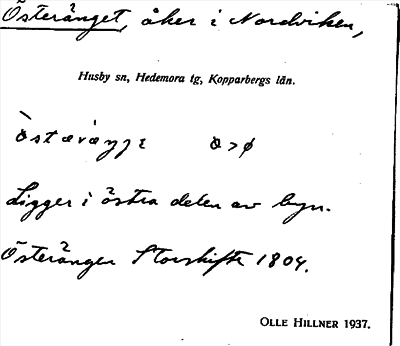 Österänget, åker i Nordviken,
Husby sn, Hedemora tg, Kopparbergs län.
Ligger i östra delen av byn.
Österänger Storskifte 1804.
OLLE HILLNER 1937.